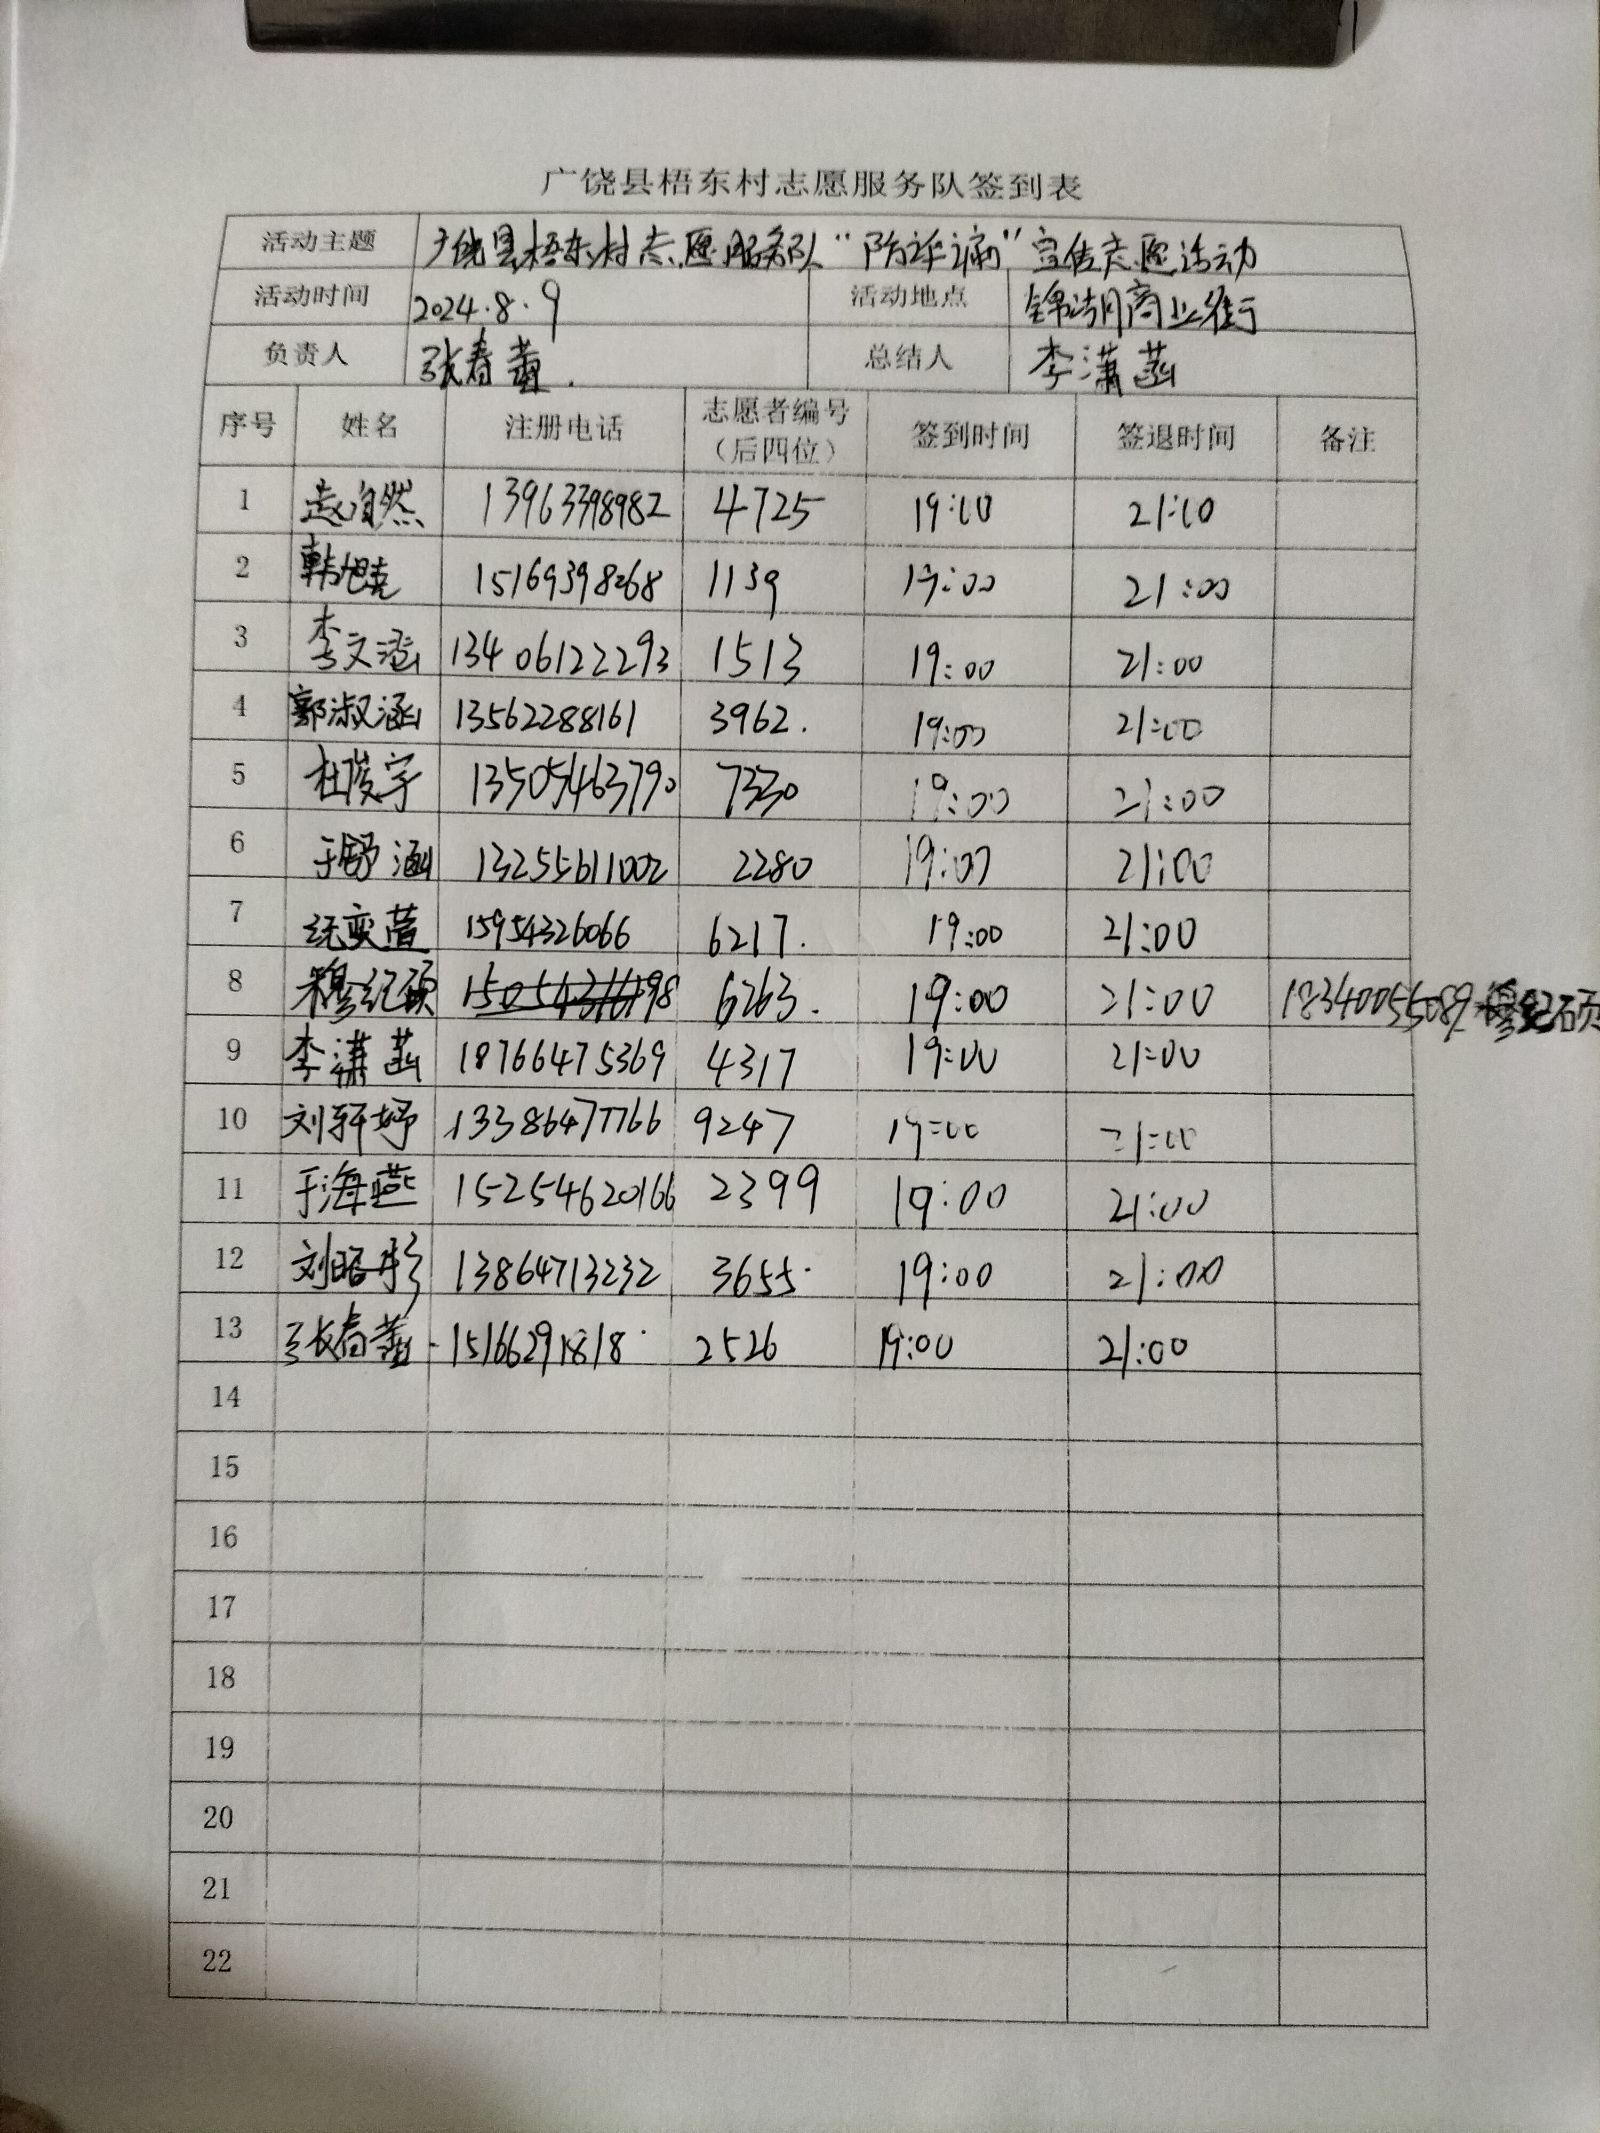 广饶县梧东村志愿服务队签到表
活动主题 广饶县梧东村志愿服务队“防诈骗”宣传志愿活动
活动时间 2024.8.9 活动地点 锦湖商业街
负责人 张春蕾. 总结人 李潇菡
序号 姓名 注册电话 志愿者编号（后四位） 签到时间 签退时间 备注
1 赵自然 13963398982 4725 19:10 21:10
2 韩旭尧 15169398268 1139 19:00 21:00
3 李文涵 13406122293 1513 19:00 21:00
4 郭淑涵 13562288161 3962. 19:00 21:00
5 杜俊宇 13505463790 7330 19:00 21:00
6 于舒涵 13255611002 2280 19:00 21:00
7 奕萱 15954326066 6217. 19:00 21:00
8 穆纪硕 6263. 19:00 21:00 18340055089 穆纪硕
9 李潇菡 18766475369 4317 19:00 21:00
10 刘轩妤 13386477766 9247 19:00 21:00
11 于海燕 15254620166 2399 19:00 21:00
12 刘昭彤 13864713232 3655. 19:00 21:00
13 张春蕾 15166291818 2526 19:00 21:00
14
15
16
17
18
19
20
21
22